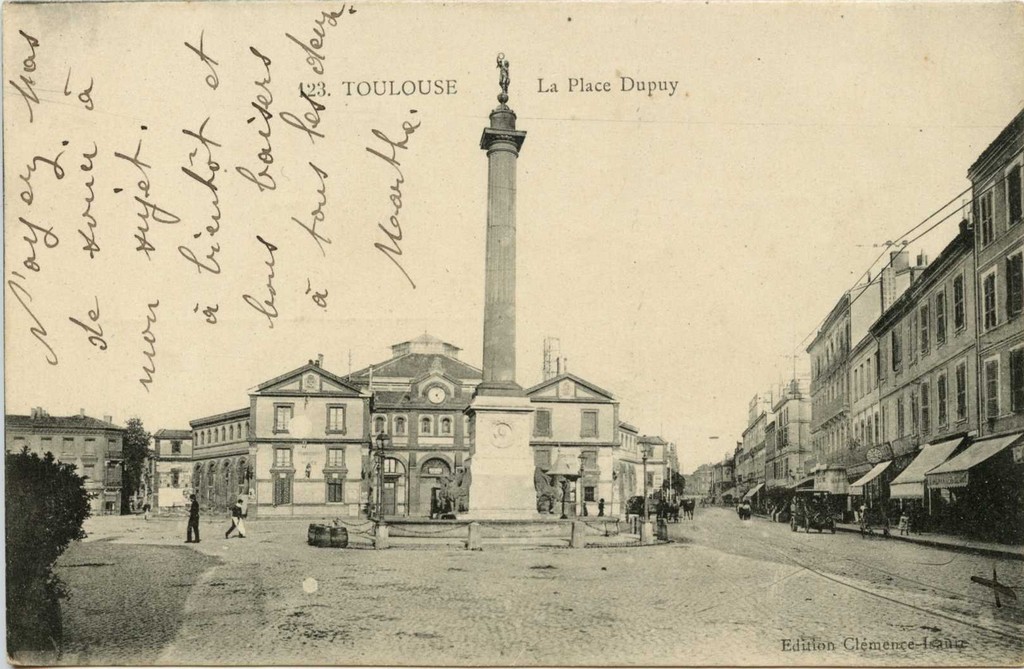 123. TOULOUSE La Place Dupuy
N'ayez pas
de souci à
mon sujet.
à bientôt et
bons baisers
à tous les deux.
Marthe.
Edition Clémence-Isaure